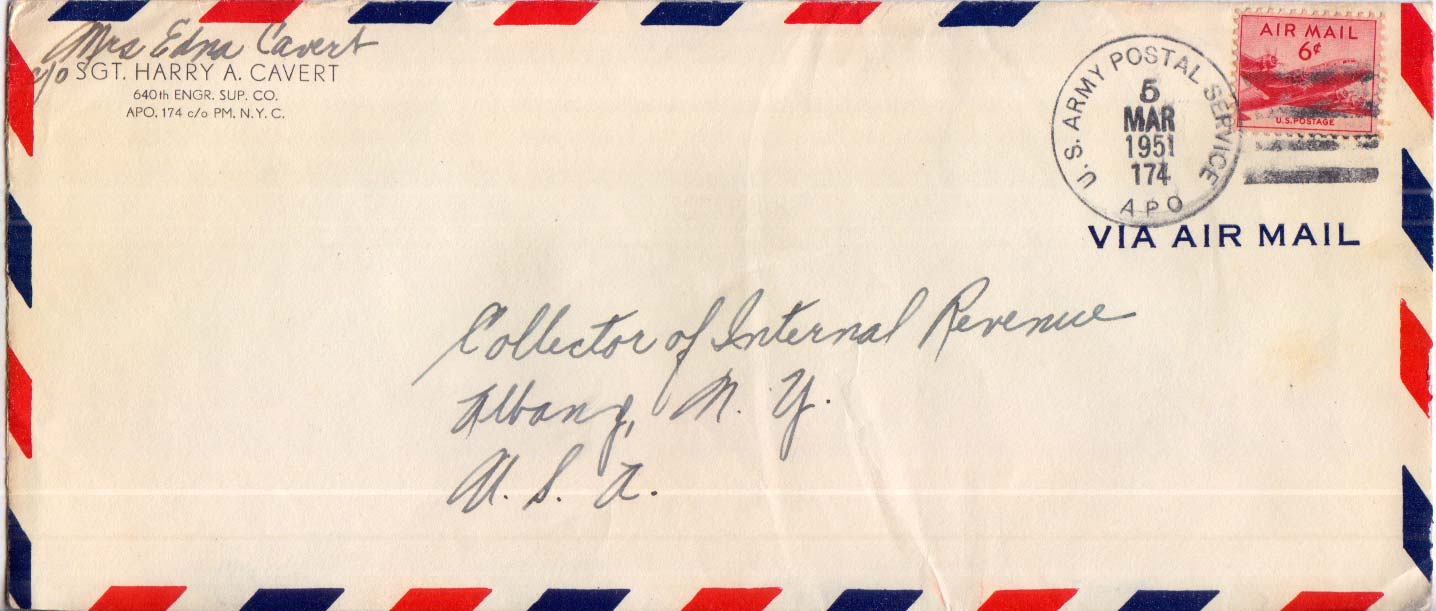 Mrs Edna Cavert
c/o SGT. HARRY A. CAVERT
640th ENGR. SUP. CO.
APO. 174 c/o PM. N. Y. C.
U. S. ARMY POSTAL SERVICE
5
MAR
1951
174
APO
AIR MAIL
6¢
U.S. POSTAGE
VIA AIR MAIL
Collector of Internal Revenue
Albany, N. Y.
U. S. A.